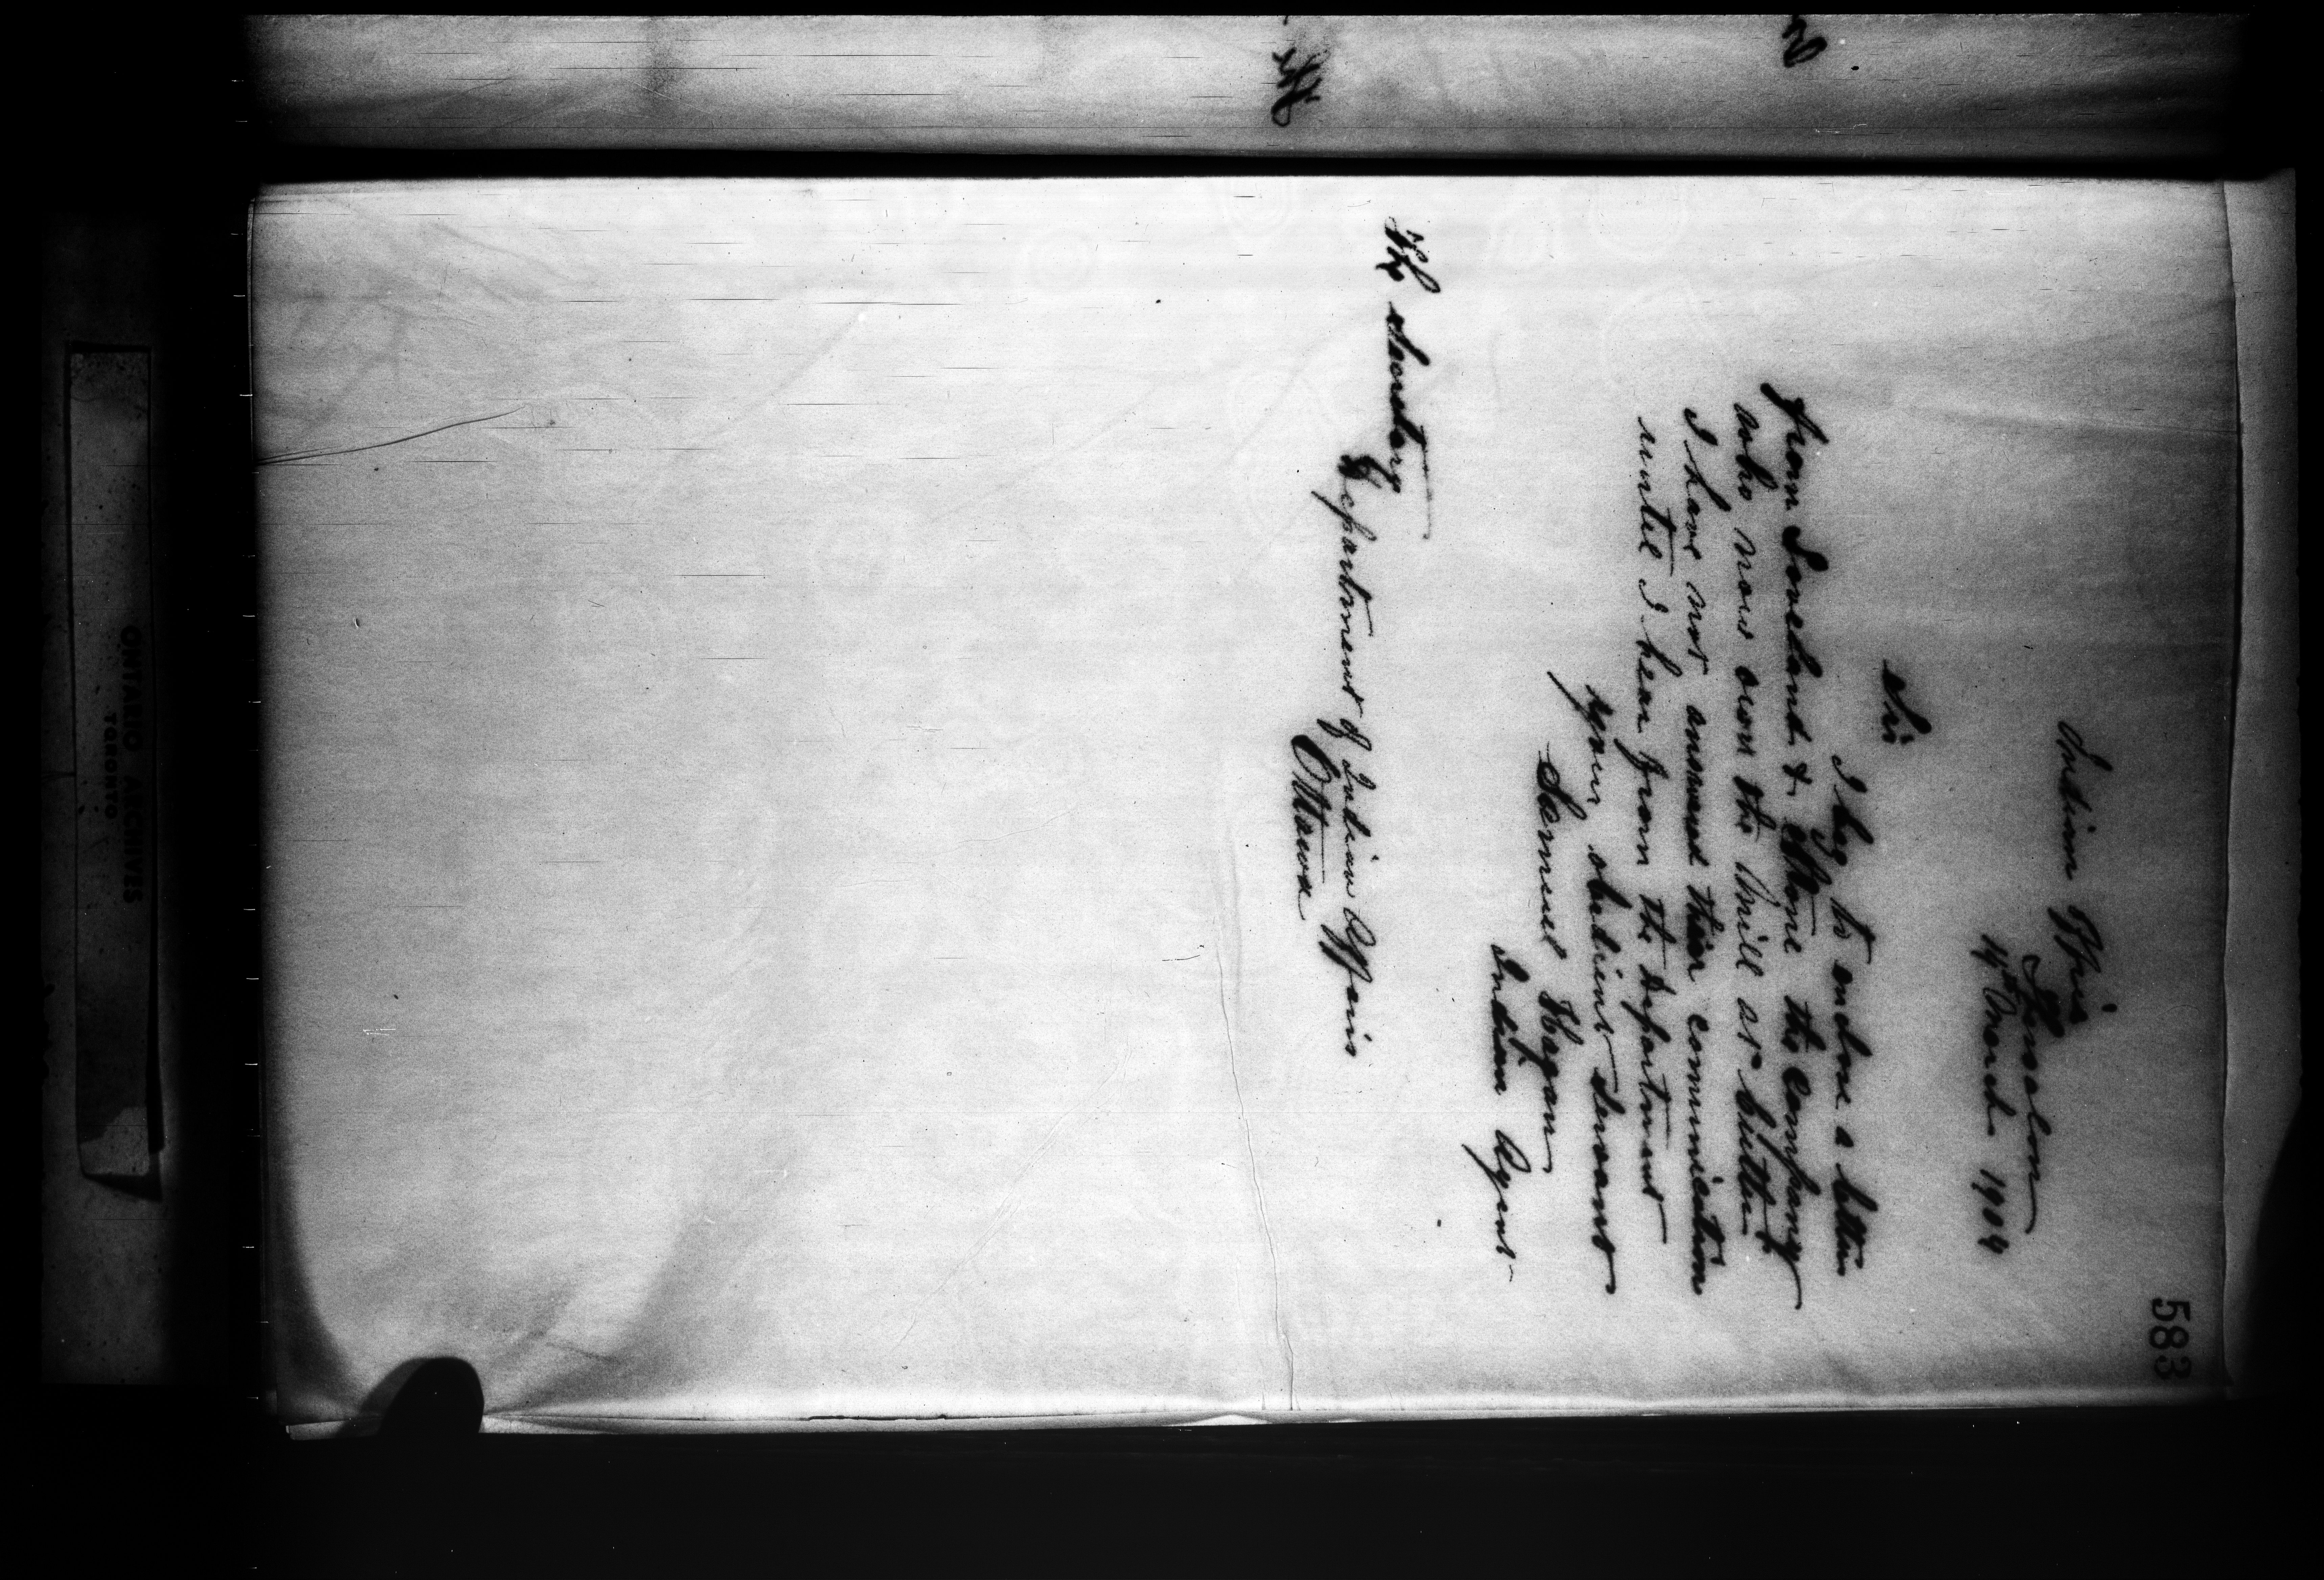 583
Indian Office
Thessalon
14th March 1904
Sir
I beg to enclose a letter
from Loveland & Stone the Company
who now own the Mill at Cutler.
I have not answered their communication
until I hear from the department
your obedient servant
Samuel Hagan
Indian Agent-
The Secretary
Department of Indian Affairs
Ottawa
ONTARIO ARCHIVES
TORONTO